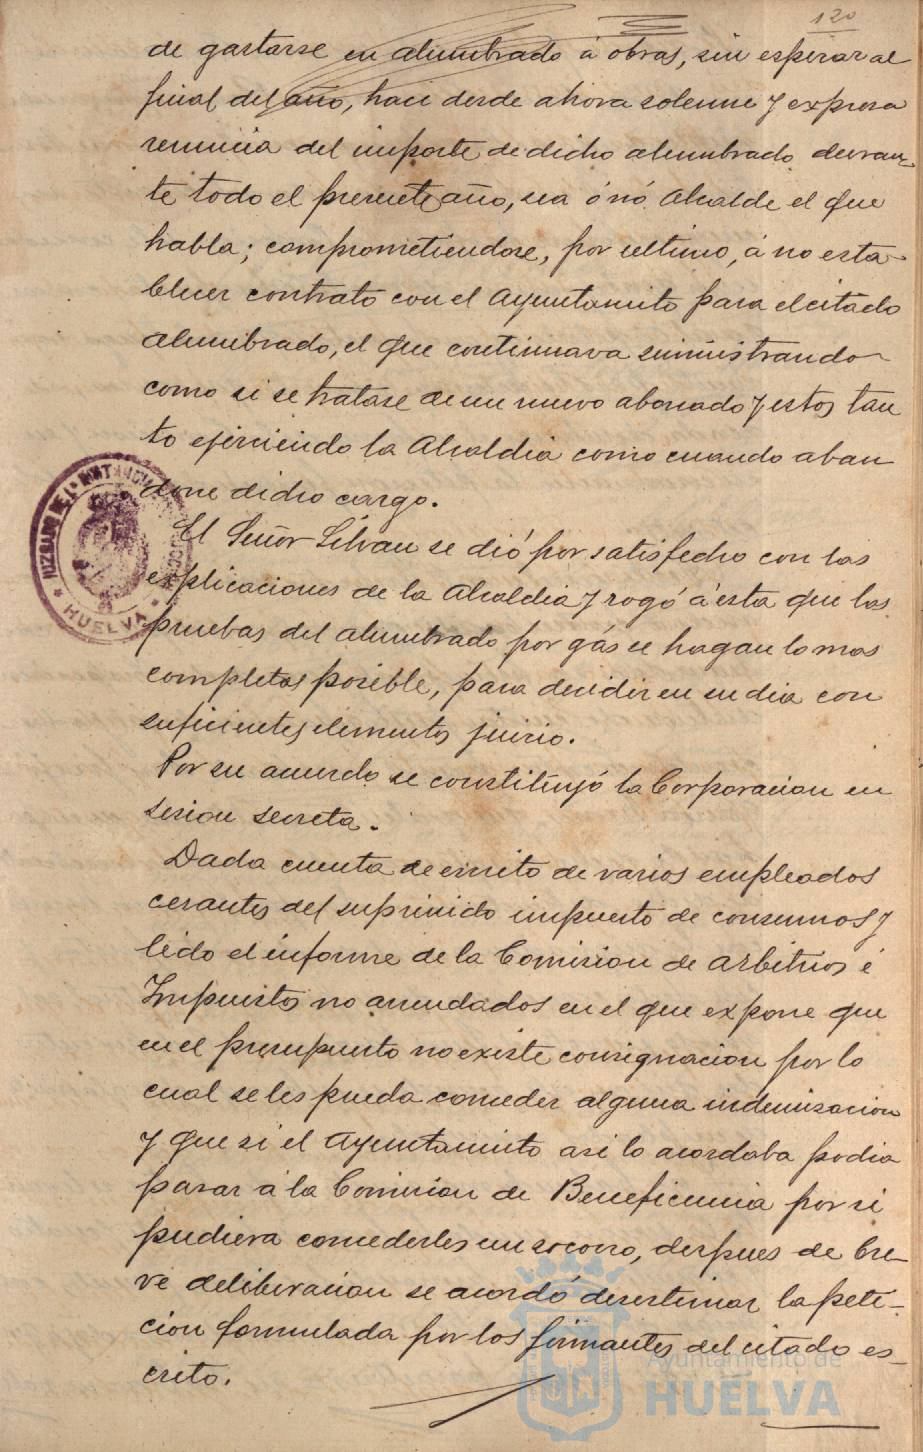 120
de gastarse en alumbrado á obras, sin esperar al
final del año, hace desde ahora solemne y expresa
renuncia del importe de dicho alumbrado duran-
te todo el presente año, sea ó nó Alcalde el que
habla; comprometiendose, por ultimo, á no esta-
blecer contrato con el Ayuntamito para el citado
alumbrado, el que continuara suministrando
como si se tratase de un nuevo abonado y estos tan
to ejerciendo la Alcaldia como cuando aban
done dicho cargo.
El Señor Silvan se dió por satisfecho con las
explicaciones de la Alcaldia y rogó á esta que las
pruebas del alumbrado por gás se hagan lo mas
completas posible, para decidir en su dia con
suficientes elementos juicio.
Por su acuerdo se constituyó la Corporacion en
sesion secreta.
Dada cuenta de escrito de varios empleados
cesantes del suprimido impuesto de consumos y
leido el informe de la Comision de Arbitrios é
Impuestos no arrendados en el que expone que
en el presupuesto no existe consignacion por lo
cual se les pueda conceder alguna indemnizacion
y que si el Ayuntamiento asi lo acordaba podia
pasar á la Comision de Beneficencia por si
pudiera concederles un socorro, despues de bre-
ve deliberacion se acordó desestimar la peti-
cion formulada por los firmantes del citado es-
crito.
JUZGADO DE 1ª INSTANCIA
HUELVA
Ayuntamiento de
HUELVA